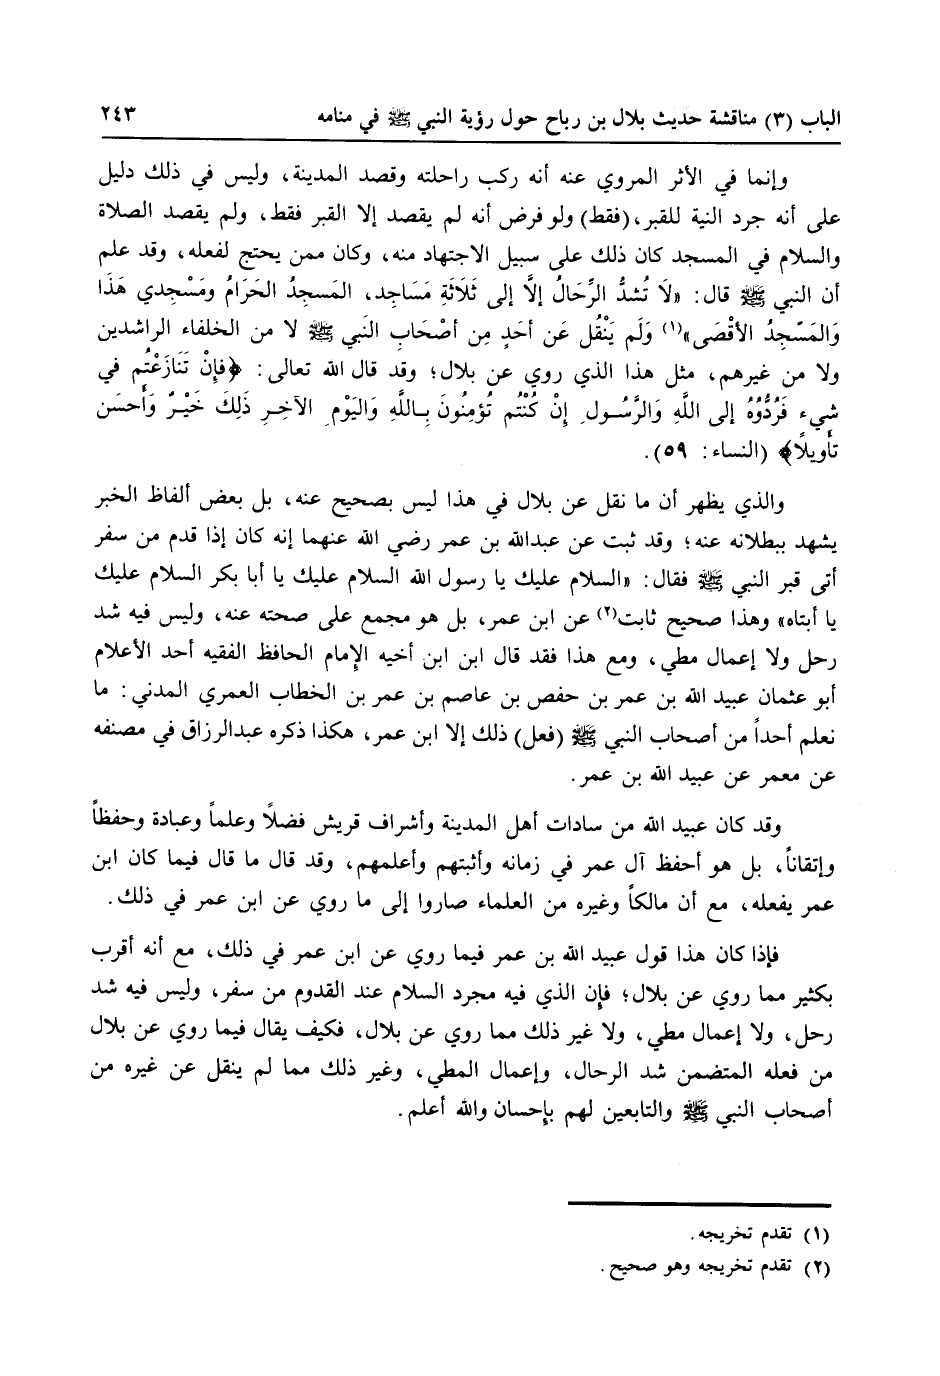 الباب (٣) مناقشة حديث بلال بن رباح حول رؤية النبي ﷺ في منامه ٢٤٣
وإنما في الأثر المروي عنه أنه ركب راحلته وقصد المدينة، وليس في ذلك دليل
على أنه جرد النية للقبر، (فقط) ولو فرض أنه لم يقصد إلا القبر فقط، ولم يقصد الصلاة
والسلام في المسجد كان ذلك على سبيل الاجتهاد منه، وكان ممن يحتج لفعله، وقد علم
أن النبي ﷺ قال: «لَا تُشدُّ الرِّحَالُ إلاَّ إلى ثَلَاثَةِ مَسَاجِد، المَسجِدُ الحَرَامُ ومَسْجِدي هَذَا
وَالمَسّجِدُ الأقْصَى»(١) وَلَم يَنْقُل عَن أحَدٍ مِن أصْحَابِ النَبي ﷺ لا من الخلفاء الراشدين
ولا من غيرهم، مثل هذا الذي روي عن بلال؛ وقد قال الله تعالى: ﴿فإنْ تَنَازَعْتُم في
شيء فَرُدُّوُهُ إلى اللَّهِ وَالرَّسُولِ إنْ كُنْتُم تُؤمِنُونَ بِاللَّهِ وَاليَوْمِ الآخِرِ ذَلِكَ خَيْرٌ وَأحسَن
تأويلاً﴾ (النساء: ٥٩).
والذي يظهر أن ما نقل عن بلال في هذا ليس بصحيح عنه، بل بعض ألفاظ الخبر
يشهد ببطلانه عنه؛ وقد ثبت عن عبدالله بن عمر رضي الله عنهما إنه كان إذا قدم من سفر
أتى قبر النبي ﷺ فقال: «السلام عليك يا رسول الله السلام عليك يا أبا بكر السلام عليك
يا أبتاه» وهذا صحيح ثابت(٢) عن ابن عمر، بل هو مجمع على صحته عنه، وليس فيه شد
رحل ولا إعمال مطي، ومع هذا فقد قال ابن ابن أخيه الإمام الحافظ الفقيه أحد الأعلام
أبو عثمان عبيد الله بن عمر بن حفص بن عاصم بن عمر بن الخطاب العمري المدني: ما
نعلم أحداً من أصحاب النبي ﷺ (فعل) ذلك إلا ابن عمر، هكذا ذكره عبدالرزاق في مصنفه
عن معمر عن عبيد الله بن عمر.
وقد كان عبيد الله من سادات أهل المدينة وأشراف قريش فضلاً وعلماً وعبادة وحفظاً
وإتقاناً، بل هو أحفظ آل عمر في زمانه وأثبتهم وأعلمهم، وقد قال ما قال فيما كان ابن
عمر يفعله، مع أن مالكاً وغيره من العلماء صاروا إلى ما روي عن ابن عمر في ذلك.
فإذا كان هذا قول عبيد الله بن عمر فيما روي عن ابن عمر في ذلك، مع أنه أقرب
بكثير مما روي عن بلال؛ فإن الذي فيه مجرد السلام عند القدوم من سفر، وليس فيه شد
رحل، ولا إعمال مطي، ولا غير ذلك مما روي عن بلال، فكيف يقال فيما روي عن بلال
من فعله المتضمن شد الرحال، وإعمال المطي، وغير ذلك مما لم ينقل عن غيره من
أصحاب النبي ﷺ والتابعين لهم بإحسان والله أعلم.
(١) تقدم تخريجه.
(٢) تقدم تخريجه وهو صحيح.